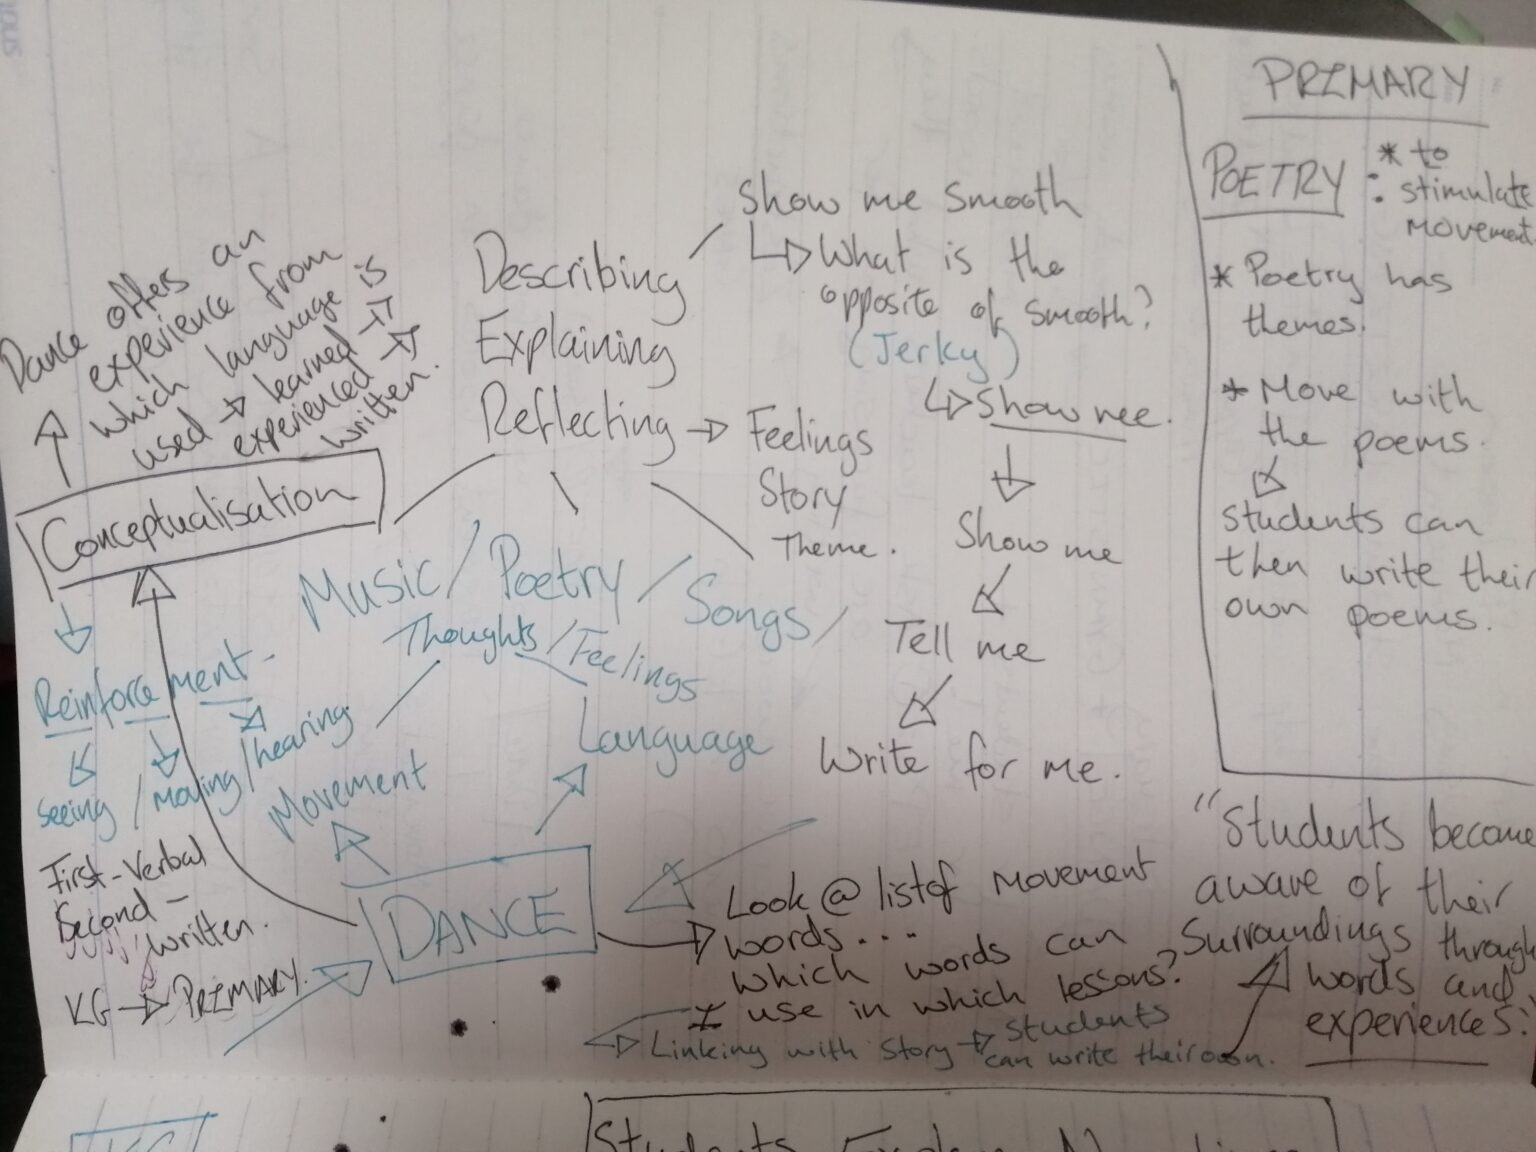 PRIMARY
POETRY : * to
stimulate
movement
* Poetry has
themes.
* Move with
the poems.
Students can
then write their
own poems.
Show me smooth
What is the
opposite of smooth?
(Jerky)
Show me.
Show me
Tell me
Write for me.
Describing
Explaining
Reflecting → Feelings
Story
Theme.
Dance offers an
experience from
which language is
used → learned →
experienced →
written.
Conceptualisation
Music / Poetry / Songs /
Thoughts / Feelings
Language
Movement
Reinforcement-
Seeing / moving / hearing
First - Verbal
Second -
written.
KG → PRIMARY.
DANCE
Look @ list of movement
words...
which words can
I use in which lessons?
Linking with story → Students
can write their own.
"Students become
aware of their
surroundings through
words and
experiences:
KG
Students Explore